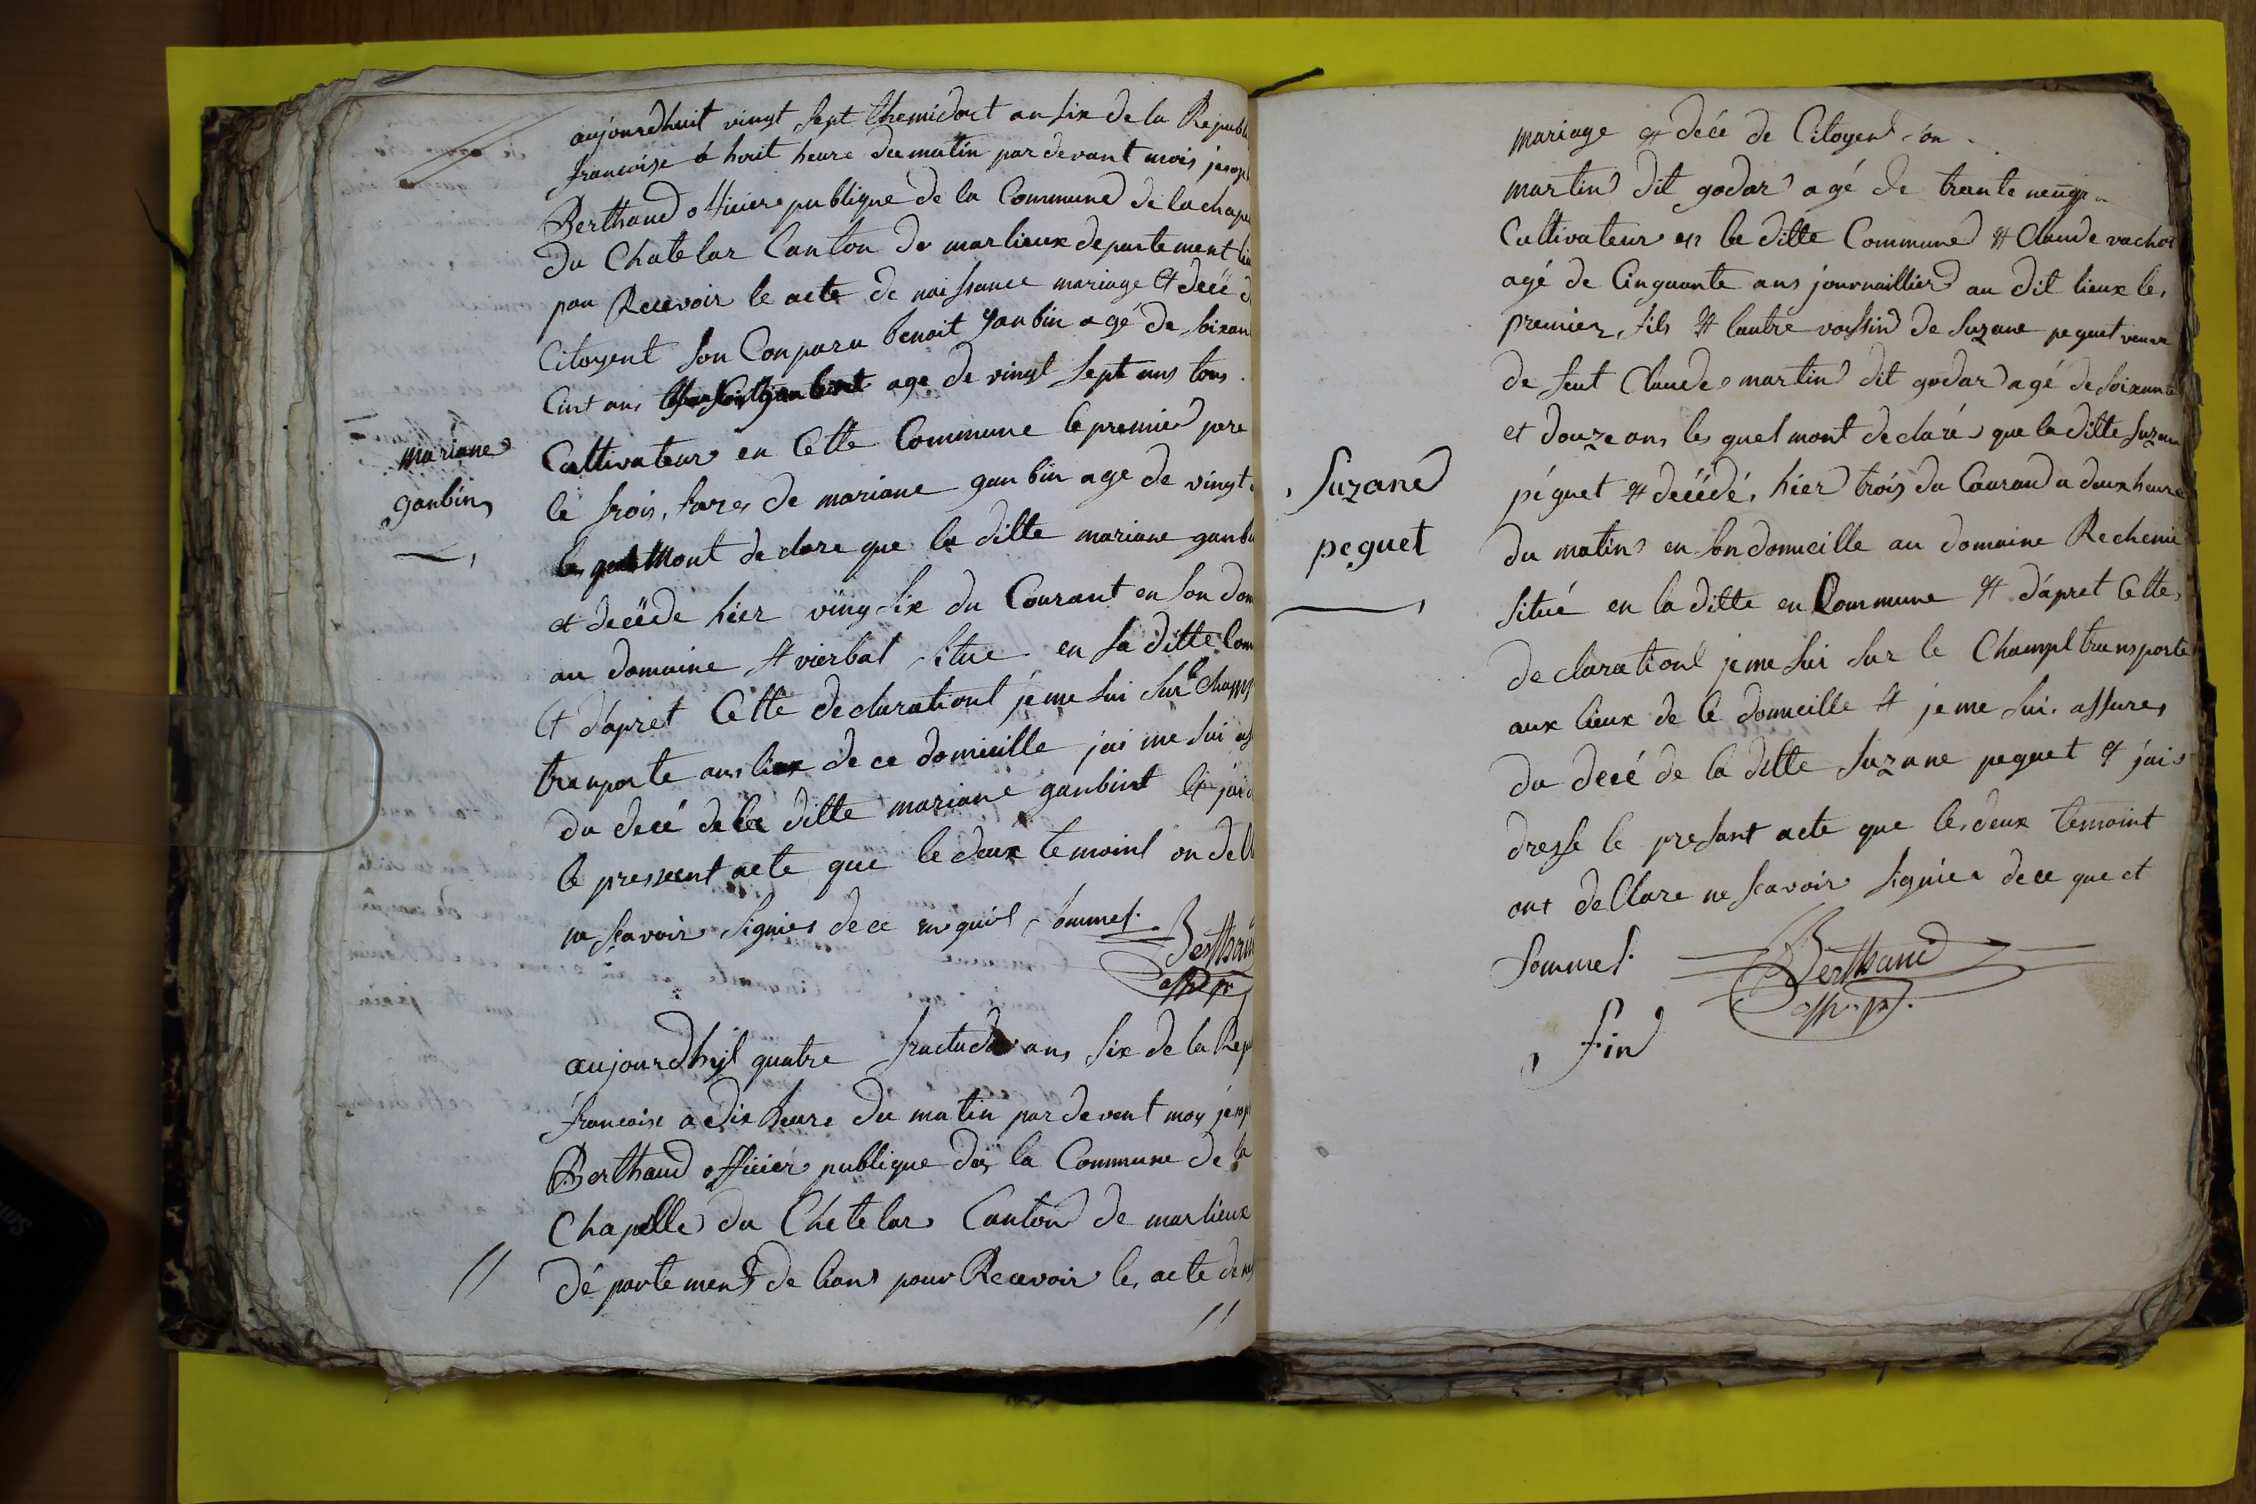 aujourdhuit vingt sept themidort an six de la Republi
francoise à huit heure du matin par devant mois joseph
Berthaud officiere publique de la Commune de la chape
du Chatelar Canton de marlieux departement
pou Recevoir le acte de naissance mariage et decé d
Citoyent son Conparu benoit ganbin agé de soixan
Cint ans age de vingt sept ans tous
mariane
ganbin
Cultivateur en Cette Commune le premier pere
le frere de mariane ganbin age de vingt
le quel mont declare que la ditte mariane ganbi
et decéde hier ving six du Courant en son dom
au domaine st vierbat situe en la ditte Com
et d'apret Cette declarationt je me sui sur le champ
tranporte aux lieux de ce domicille jai me sui as
du decé de la ditte mariane ganbint et jai d
le pressent acte que le deux temoint on dell
ne scavoir signier de ce enquis Sommes.
Berthaud
off. p.
aujourdhyt quatre fructudor ans six de la Repu
francoise a dix heure du matin par devent moy joseph
Berthaud officier publique de la Commune de la
Chapelle du Chetelar Canton de marlieux
dé partement de lions pour Recevoir les acte de n
mariage et decé de Citoyent on
martin dit godar agé de trante neuf
Cultivateur en la ditte Commune et Claude vachot
agé de Cinquante ans journaillier au dit lieux le
premier fils et lautre voissin de Suzane peguet veuve
de feut Claude martin dit godar agé de soixante
et douze ans les quel mont declaré que la ditte Suzan
Suzane
peguet
péguet et decédé hier trois du Courand a deux heure
du matin en son domicille au domaine Rechemi
situé en la ditte en Commune et d'apret Cette
declarationt je me sui sur le Champt transporte
aux lieux de ce domicille et je me sui assure
du decé de la ditte Suzane peguet et jai
dresse le presant acte que les deux temoint
ont dellare ne scavoir signier de ce que et
Sommes.
Berthaud
off. p.
fin